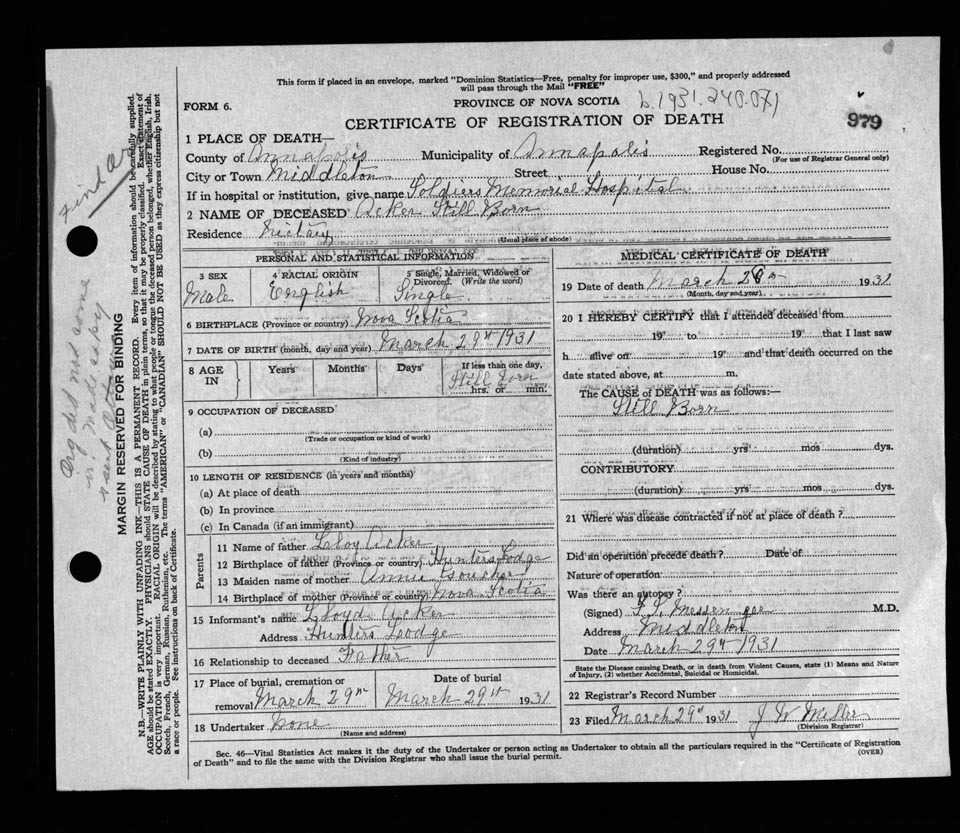 This form if placed in an envelope, marked "Dominion Statistics—Free, penalty for improper use, $300," and properly addressed
will pass through the Mail "FREE"
FORM 6.
PROVINCE OF NOVA SCOTIA b.1931.240.071
CERTIFICATE OF REGISTRATION OF DEATH
979
1 PLACE OF DEATH—
County of Annapolis Municipality of Annapolis Registered No.
(For use of Registrar General only)
City or Town Middleton Street House No.
If in hospital or institution, give name Soldiers Memorial Hospital
2 NAME OF DECEASED Acker Still Born
Residence Nictaux
(Usual place of abode)
PERSONAL AND STATISTICAL INFORMATION
3 SEX 4 RACIAL ORIGIN 5 Single, Married, Widowed or Divorced. (Write the word)
Male English Single
6 BIRTHPLACE (Province or country) Nova Scotia
7 DATE OF BIRTH (month, day and year) March 29th 1931
8 AGE IN Years Months Days If less than one day,
Still born
hrs. or min.
9 OCCUPATION OF DECEASED
(a)
(Trade or occupation or kind of work)
(b)
(Kind of industry)
10 LENGTH OF RESIDENCE (in years and months)
(a) At place of death
(b) In province
(c) In Canada (if an immigrant)
Parents
11 Name of father Acker
12 Birthplace of father (Province or country) Hunters Lodge
13 Maiden name of mother Annie
14 Birthplace of mother (Province or country) Nova Scotia
15 Informant's name Lloyd Acker
Address Hunters Lodge
16 Relationship to deceased Father
17 Place of burial, cremation or Date of burial
removal March 29th March 29th 1931
18 Undertaker None
(Name and address)
MEDICAL CERTIFICATE OF DEATH
19 Date of death March 1931
(Month, day and year)
20 I HEREBY CERTIFY that I attended deceased from
19 to 19 that I last saw
h alive on 19 and that death occurred on the
date stated above, at m.
The CAUSE of DEATH was as follows:—
Still Born
(duration) yrs mos dys.
CONTRIBUTORY
(duration) yrs mos dys.
21 Where was disease contracted if not at place of death?
Did an operation precede death? Date of
Nature of operation
Was there an autopsy?
(Signed) Messenger M.D.
Address Middleton
Date March 29th 1931
State the Disease causing Death, or in death from Violent Causes, state (1) Means and Nature
of Injury, (2) whether Accidental, Suicidal or Homicidal.
22 Registrar's Record Number
23 Filed March 29th 1931 J W Miller
(Division Registrar)
Sec. 46—Vital Statistics Act makes it the duty of the Undertaker or person acting as Undertaker to obtain all the particulars required in the "Certificate of Registration
of Death" and to file the same with the Division Registrar who shall issue the burial permit.
(OVER)
MARGIN RESERVED FOR BINDING
N.B.—WRITE PLAINLY WITH UNFADING INK—THIS IS A PERMANENT RECORD. Every item of information should be carefully supplied.
AGE should be stated EXACTLY. PHYSICIANS should STATE CAUSE OF DEATH in plain terms, so that it may be properly classified. Exact statement of
OCCUPATION is very important. RACIAL ORIGIN will be described by stating to what people or tongue the deceased person belonged, whether English, Irish,
Scotch, French, German, Russian, Ruthenian, etc. The terms "AMERICAN" or "CANADIAN" SHOULD NOT BE USED as they express citizenship but not
a race or people. See instructions on back of Certificate.